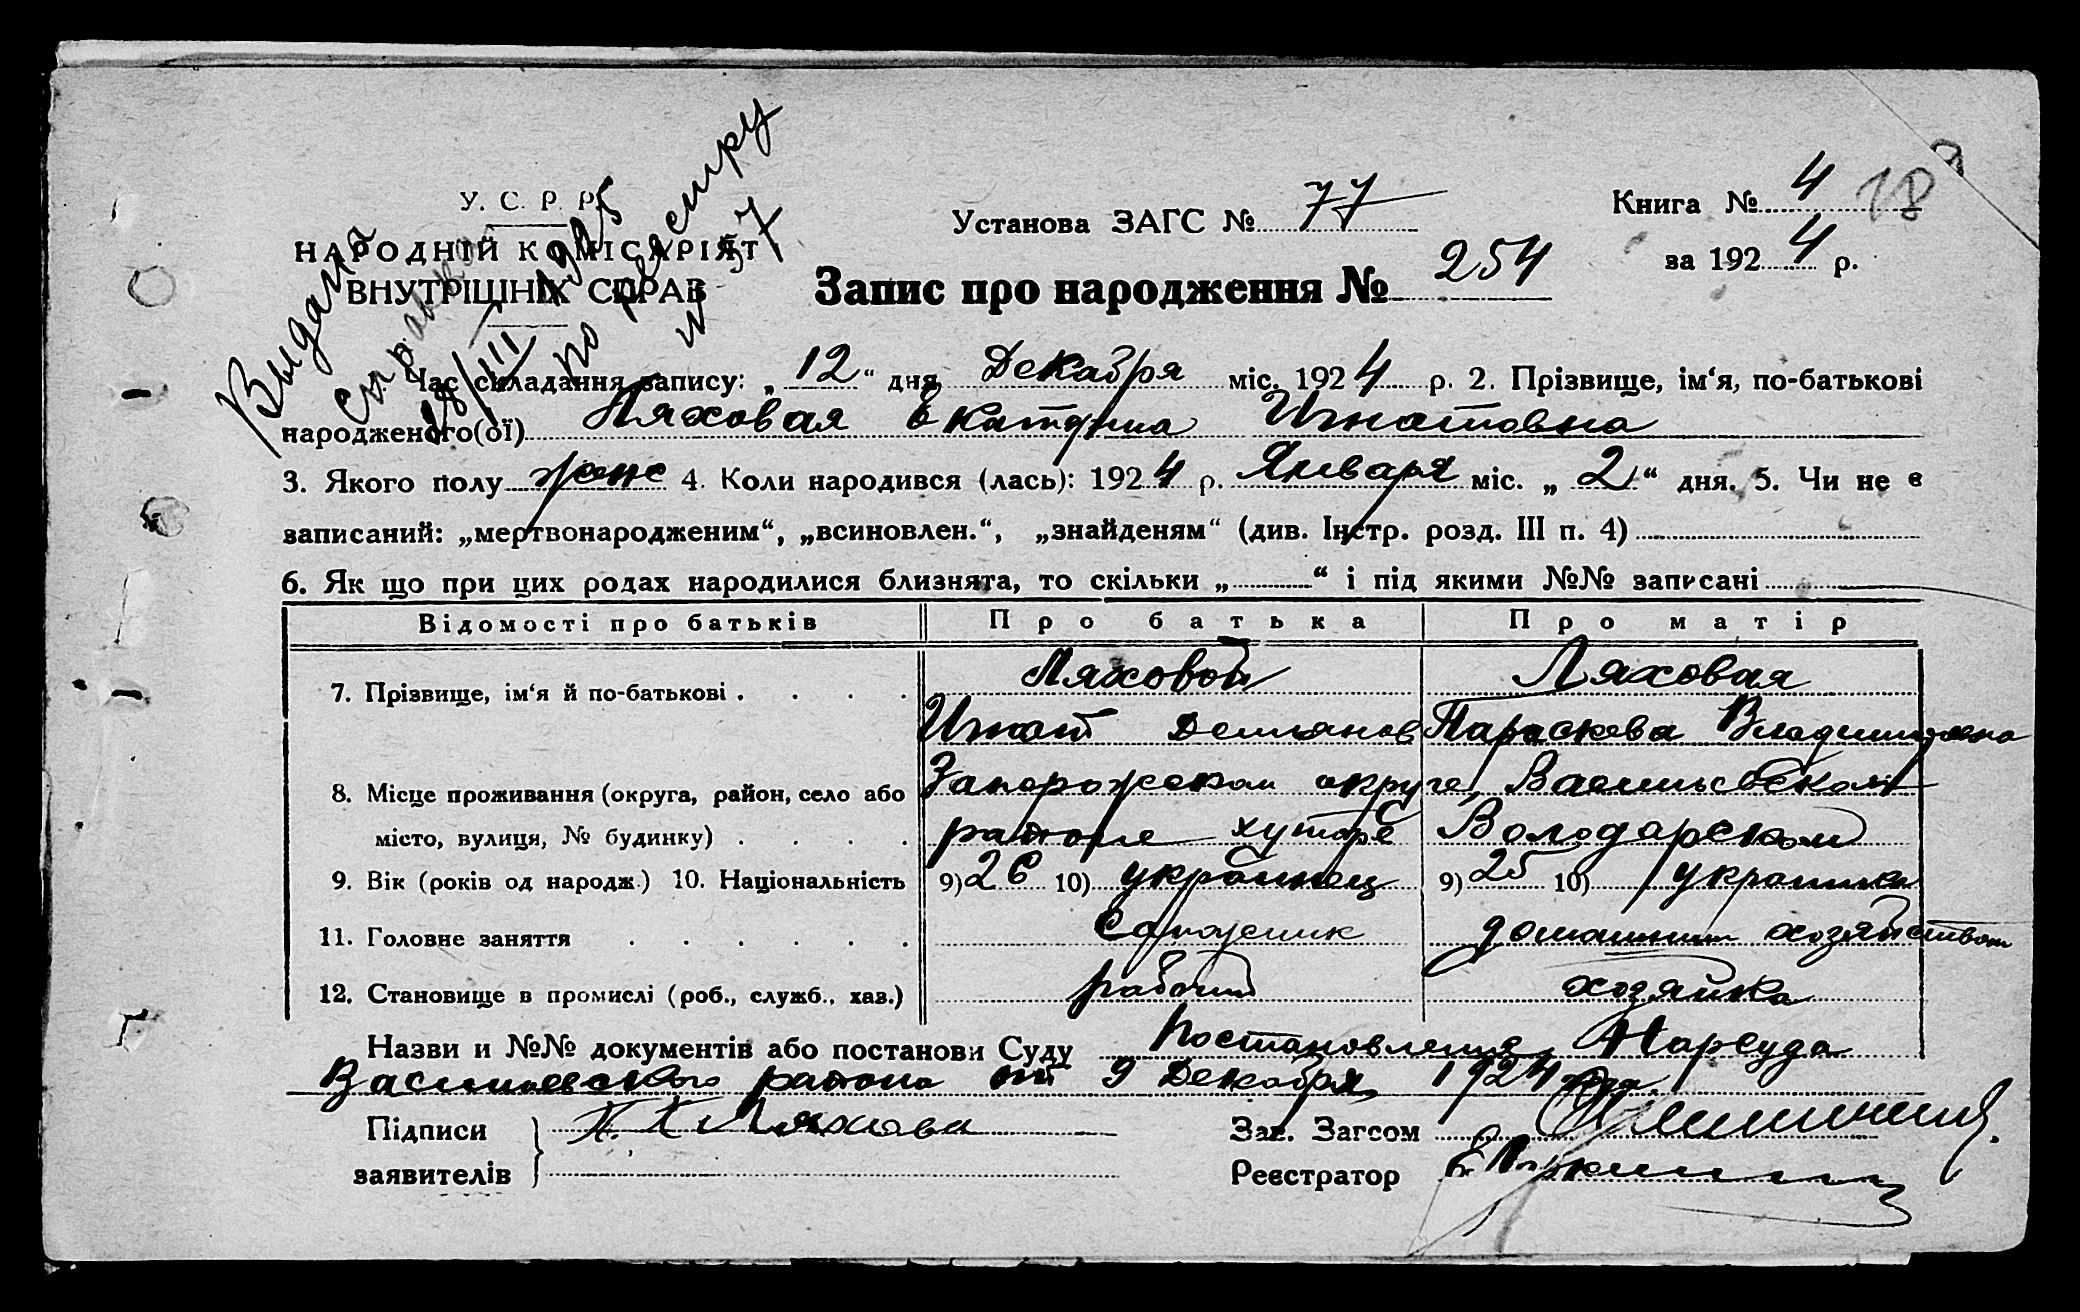 Выдана
справка
18/III 1925
по реестру
№ 57
У. С. Р. Р.
НАРОДНІЙ КОМІСАРІЯТ
ВНУТРІШНІХ СПРАВ
Установа ЗАГС № 77
Книга № 4
18
за 1924 р.
Запис про народження № 254
Час складання запису: „12“ дня Декабря міс. 1924 р. 2. Прізвище, ім‘я, по-батькові
народженого(ої) Ляховая Екатерина Игнатовна
3. Якого полу женс 4. Коли народився (лась): 1924 р. Января міс. „2“ дня. 5. Чи не є
записаний: „мертвонародженим“, „всиновлен.“, „знайденям“ (див. Інстр. розд. III п. 4)
6. Як що при цих родах народилися близнята, то скільки „ “ і під якими №№ записані
Відомості про батьків Про батька Про матір
7. Прізвище, ім‘я й по-батькові . . . . Ляховой Ляховая
Игнат Демьянов Параскева Владимировна
8. Місце проживання (округа, район, село або Запорожском округе, Васильевском
місто, вулиця, № будинку) . . . . районе хуторе Володарском
9. Вік (років од народж.) 10. Національність 9) 26 10) украинец 9) 25 10) украинка
11. Головне заняття . . . . . . Сапожник домашним хозяйством
12. Становище в промислі (роб., служб., хаз.) рабочий хозяйка
Назви и №№ документів або постанови Суду Постановления Нарсуда
Васильевского района от 9 Декабря 1924 года.
Підписи Ляхова
заявителів
Зав. Загсом
Реєстратор